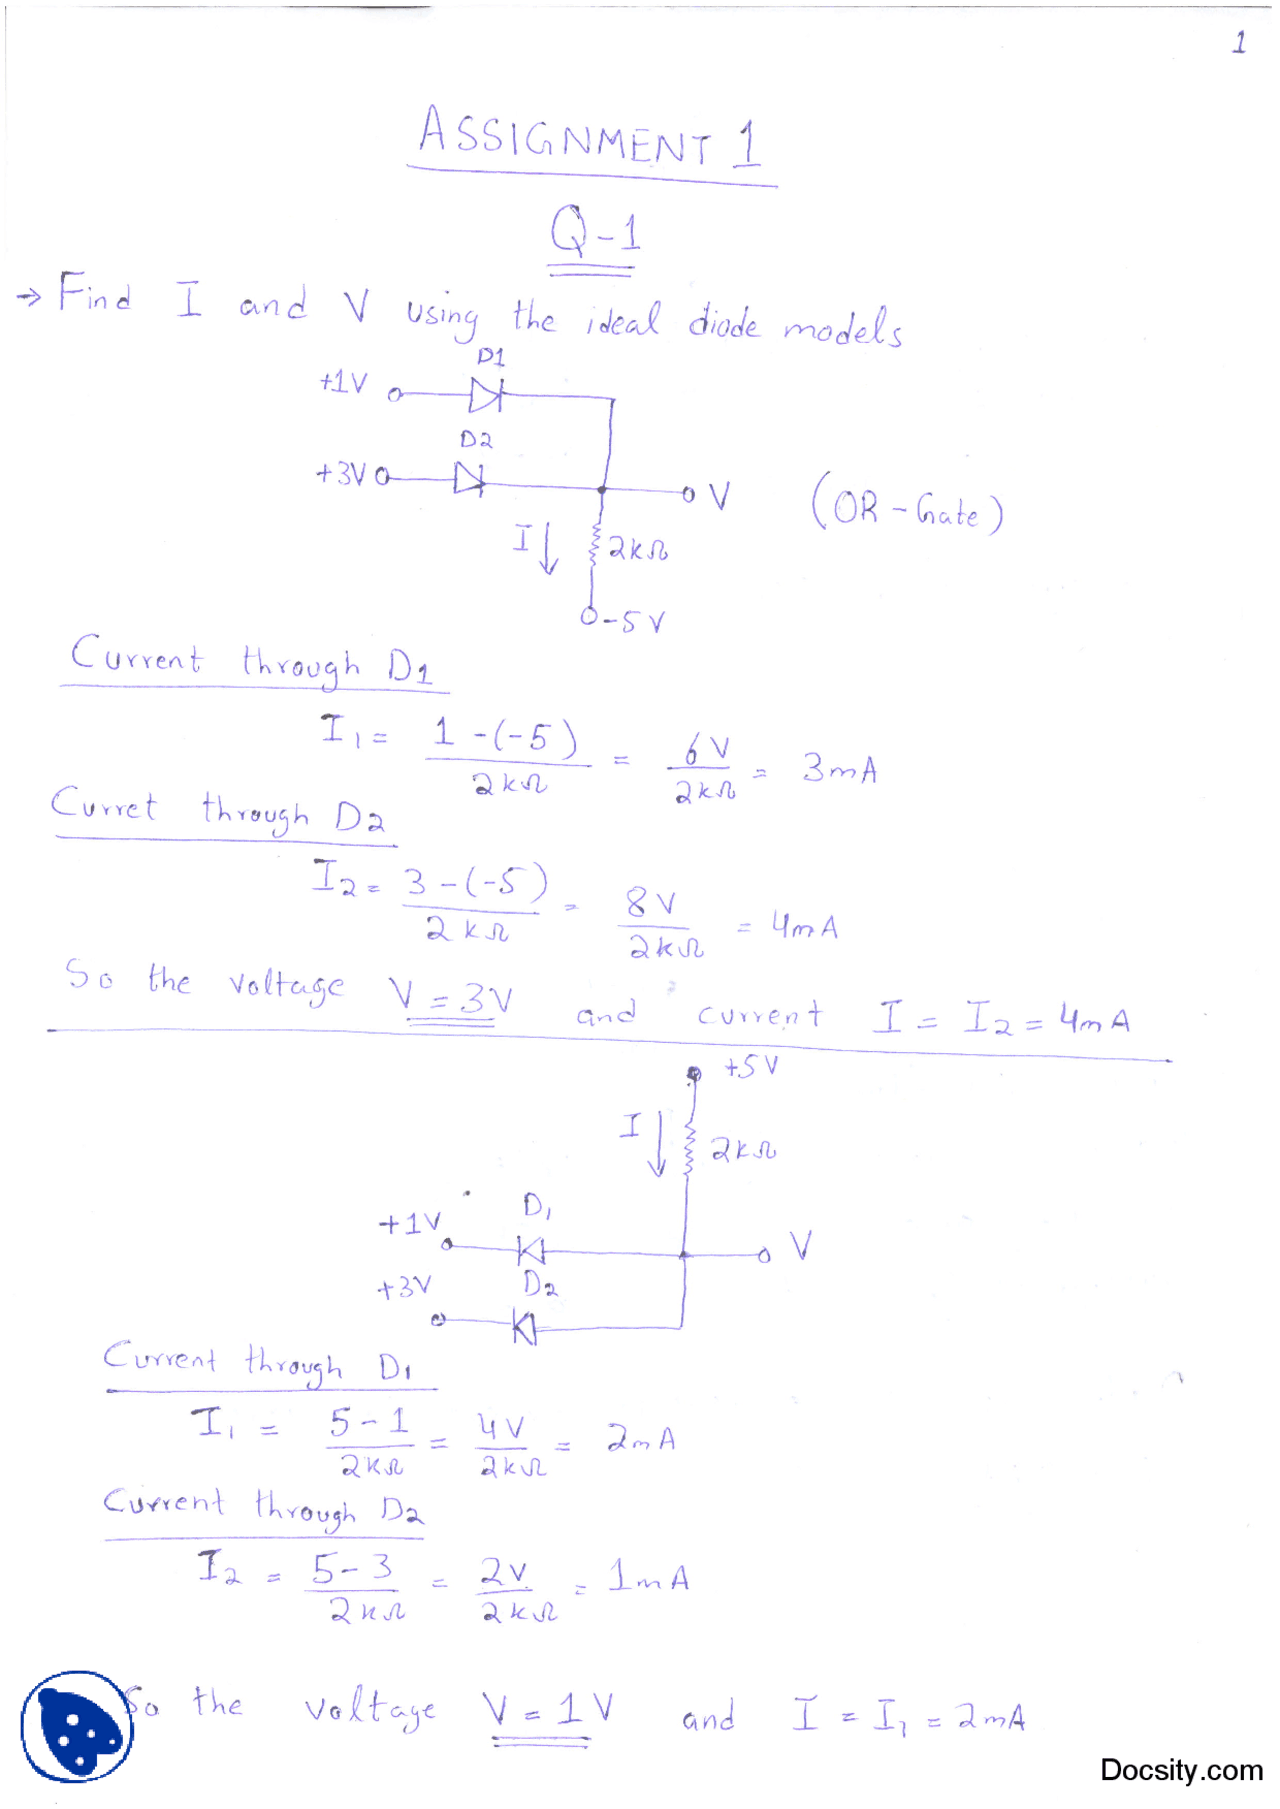 1
ASSIGNMENT 1
Q-1
→ Find I and V using the ideal diode models
D1
+1V
D2
+3V
V
(OR-Gate)
I↓
2kΩ
-5V
Current through D1
I1 = 1-(-5)/2kΩ = 6V/2kΩ = 3mA
Curret through D2
I2 = 3-(-5)/2kΩ = 8V/2kΩ = 4mA
So the voltage V = 3V and current I = I2 = 4mA
+5V
I↓
2kΩ
D1
+1V
V
D2
+3V
Current through D1
I1 = 5-1/2kΩ = 4V/2kΩ = 2mA
Current through D2
I2 = 5-3/2kΩ = 2V/2kΩ = 1mA
So the voltage V = 1V and I = I1 = 2mA
Docsity.com